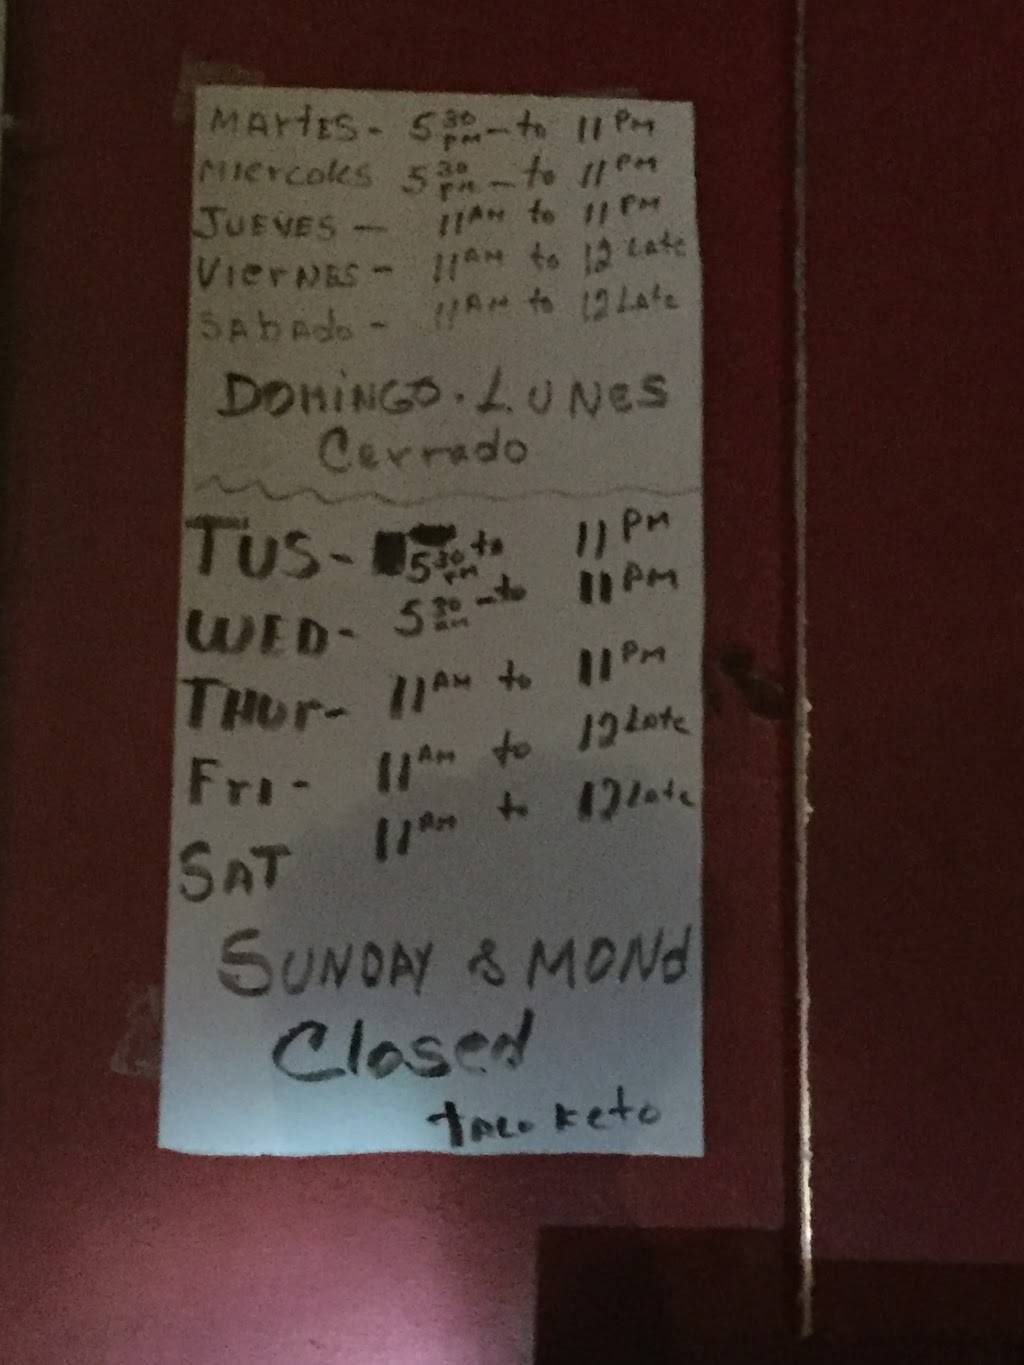 MARTES - 5 30 PM - to 11 PM
Miercoles 5 30 PM - to 11 PM
JUEVES - 11 AM to 11 PM
VierNES - 11 AM to 12 Late
SAbAdo - 11 AM to 12 Late
DOMiNGO. LUNES
Cerrado
TUS - 5 30 PM to 11 PM
WED - 5 30 am - to 11 PM
THUr - 11 AM to 11 PM
Fri - 11 AM to 12 Late
SAT 11 AM to 12 Late
SUNDAY & MONd
Closed
tAco Keto